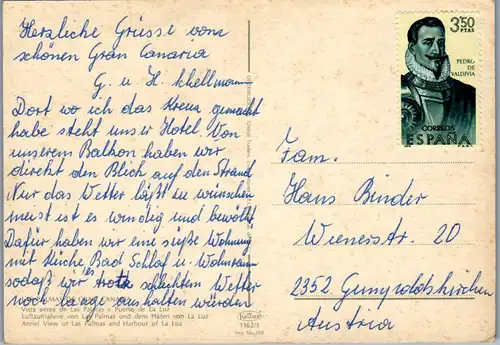 Herzliche Grüsse vom
schönen Gran Canaria
G. u. H. Schellmann
Dort wo ich das Kreuz gemacht
habe steht unser Hotel. Von
unserem Balkon haben wir
direkt den Blick auf den Strand
Nur das Wetter läßt zu wünschen
meist ist es windig und bewölkt
Dafür haben wir eine süße Wohnung
mit Küche Bad Schlaf u. Wohnraum
sodaß wir trotz schlechten Wetter
noch lange aushalten würden
Vista aerea de Las Palmas y Puerto de La Luz
Luftaufnahme von Las Palmas und dem Hafen von La Luz
Aeriel View of Las Palmas and Harbour of La Luz
1962/1
3,50
PTAS
PEDRO
DE
VALDIVIA
CORREOS
ESPAÑA
Fam.
Hans Binder
Wienerstr. 20
2352 Gumpoldskirchen
Austria